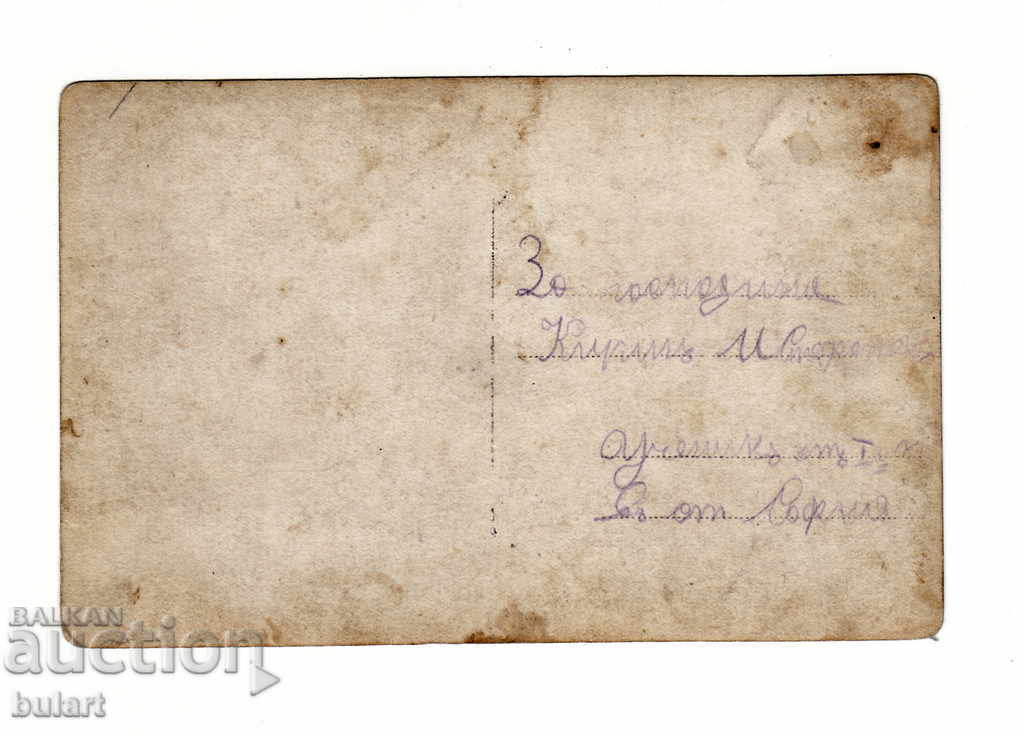 За господина
Кирилъ И
ученикъ отъ I
въ от София
BALKAN
auction
bulart